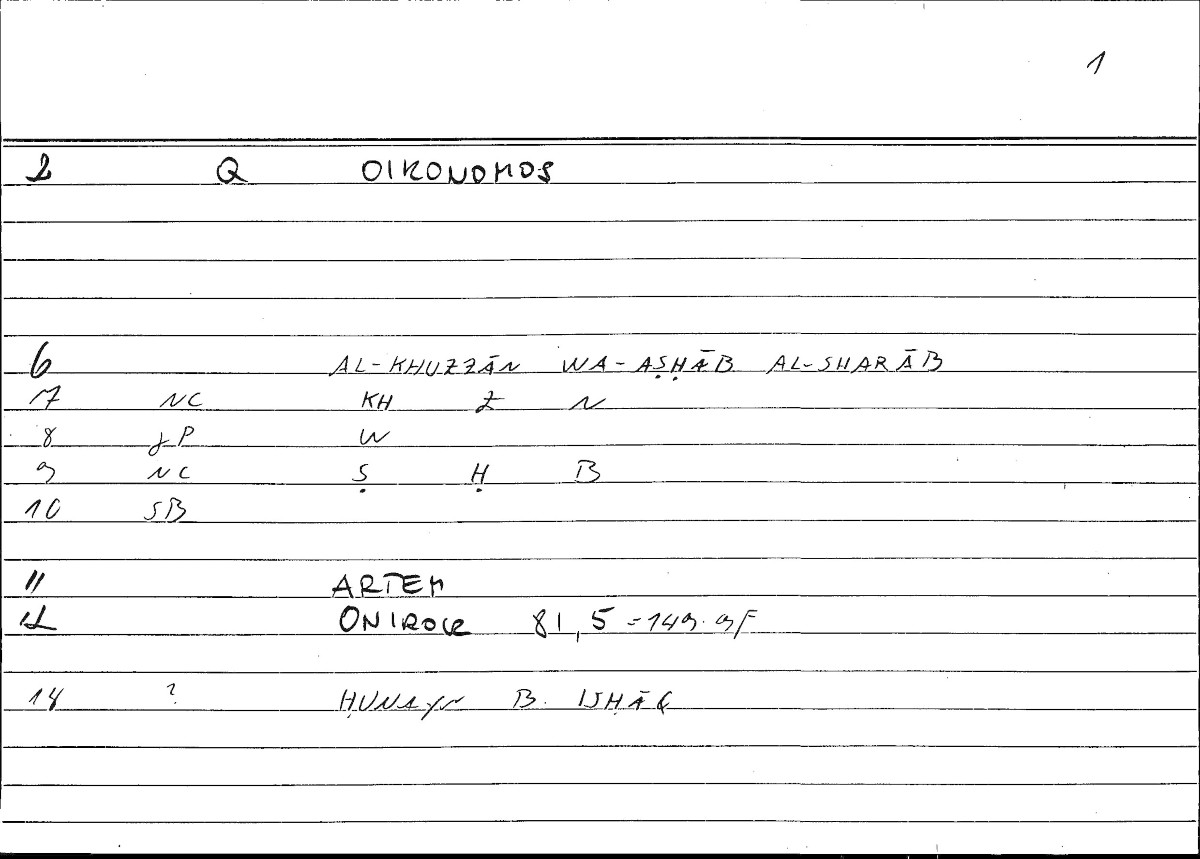 1
2 Q OIKONOMOS
6 AL-KHUZZĀN WA-AṢḤĀB AL-SHARĀB
7 NC KH Z N
8 gP W
9 NC Ṣ Ḥ B
10 SB
11 ARTEM
12 ONIROCR 81,5=149.9F
14 ? ḤUNAYN B. ISḤĀQ